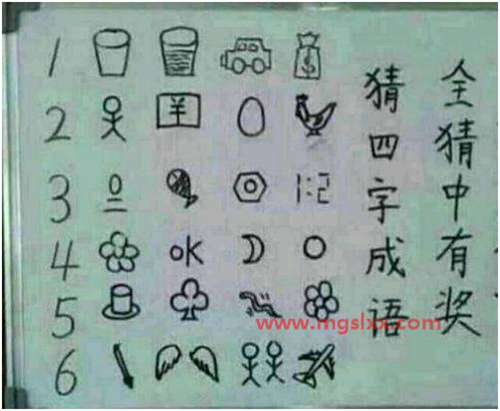 1 $
2 ¥
3 1:2
4 OK
5
6
猜四字成语
全猜中有奖
www.mgslxx.com